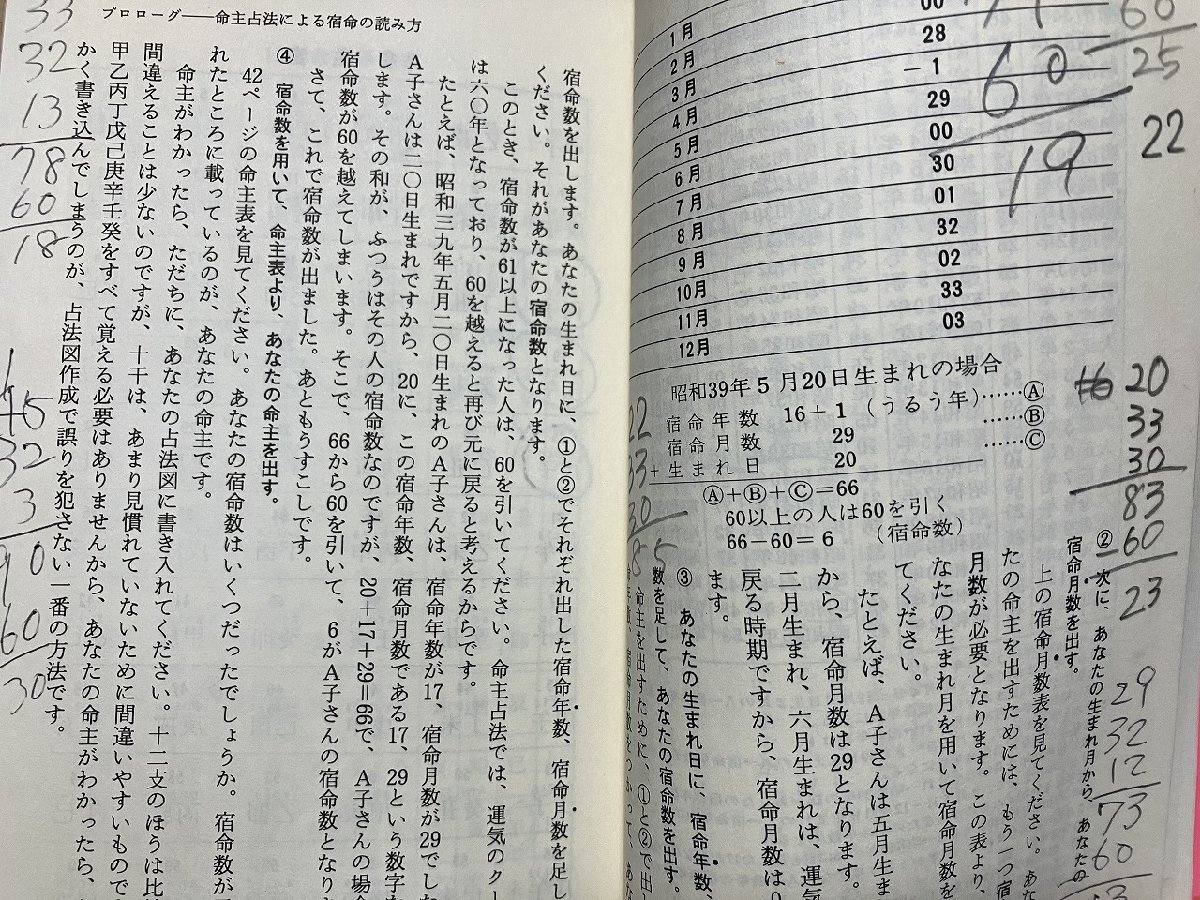 1月 00
2月 28
3月 −1
4月 29
5月 00
6月 30
7月 01
8月 32
9月 02
10月 33
11月 03
12月
昭和39年5月20日生まれの場合
宿命年数 16+1 (うるう年)……Ⓐ
宿命月数 29 ……Ⓑ
+生まれ日 20 ……Ⓒ
Ⓐ+Ⓑ+Ⓒ=66
60以上の人は60を引く
66−60=6 (宿命数)
② 次に、あなたの生まれ月から、あなたの
宿命月数を出す。
上の宿命月数表を見てください。あな
たの命主を出すためには、もう一つ宿
月数が必要となります。この表より、
なたの生まれ月を用いて宿命月数を
てください。
たとえば、A子さんは五月生ま
から、宿命月数は29となります。
二月生まれ、六月生まれは、運気
戻る時期ですから、宿命月数は0
ます。
③ あなたの生まれ日に、宿命年数、
数を足して、あなたの宿命数を出す。
命主を出すために、①と②で出し
プロローグ——命主占法による宿命の読み方
宿命数を出します。あなたの生まれ日に、①と②でそれぞれ出した宿命年数、宿命月数を足し
ください。それがあなたの宿命数となります。
このとき、宿命数が61以上になった人は、60を引いてください。命主占法では、運気のクー
は六〇年となっており、60を越えると再び元に戻ると考えるからです。
たとえば、昭和三九年五月二〇日生まれのA子さんは、宿命年数が17、宿命月数が29でした
A子さんは二〇日生まれですから、20に、この宿命年数、宿命月数である17、29という数字を
します。その和が、ふつうはその人の宿命数なのですが、20+17+29=66で、A子さんの場合
宿命数が60を越えてしまいます。そこで、66から60を引いて、6がA子さんの宿命数となりま
さて、これで宿命数が出ました。あともうすこしです。
④ 宿命数を用いて、命主表より、あなたの命主を出す。
42ページの命主表を見てください。あなたの宿命数はいくつだったでしょうか。宿命数が
れたところに載っているのが、あなたの命主です。
命主がわかったら、ただちに、あなたの占法図に書き入れてください。十二支のほうは比
間違えることは少ないのですが、十干は、あまり見慣れていないために間違いやすいもので
甲乙丙丁戊己庚辛壬癸をすべて覚える必要はありませんから、あなたの命主がわかったら、
かく書き込んでしまうのが、占法図作成で誤りを犯さない一番の方法です。
60
25
22
60
19
20
33
30
83
60
23
29
32
12
73
60
13
33
32
13
78
60
18
32
3
90
60
30